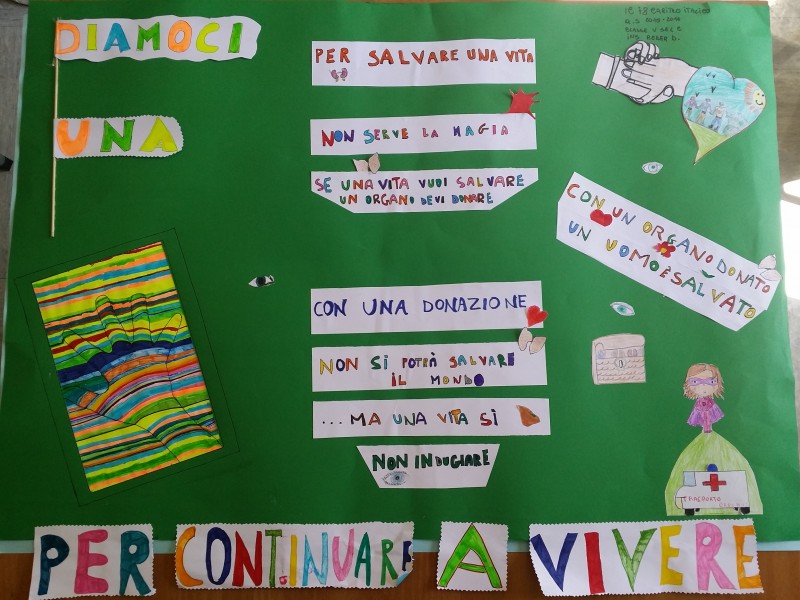 DIAMOCI
UNA
PER SALVARE UNA VITA
NON SERVE LA MAGIA
SE UNA VITA VUOI SALVARE
UN ORGANO DEVI DONARE
CON UN ORGANO DONATO
UN UOMO È SALVATO
CON UNA DONAZIONE
NON SI POTRÀ SALVARE
IL MONDO
...MA UNA VITA SÌ
NON INDUGIARE
TRASPORTO
PER CONTINUARE A VIVERE